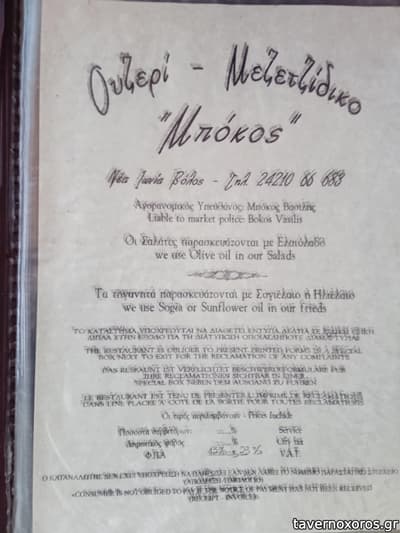 Ουζερί - Μεζετζίδικο
"Μπόκος"
Νέα Ιωνία Βόλος - Τηλ. 24210 66 683
Αγορανομικός Υπεύθυνος: Μπόκος Βασίλης
Liable to market police: Bokos Vasilis
Οι Σαλάτες παρασκευάζονται με Ελαιόλαδο
we use Olive oil in our Salads
Τα τηγανητά παρασκευάζονται με Σογιέλαιο ή Ηλιέλαιο
we use Sogia or Sunflower oil in our frieds
ΤΟ ΚΑΤΑΣΤΗΜΑ ΥΠΟΧΡΕΟΥΤΑΙ ΝΑ ΔΙΑΘΕΤΕΙ ΕΝΤΥΠΑ ΔΕΛΤΙΑ ΣΕ ΕΙΔΙΚΗ ΘΕΣΗ
ΔΙΠΛΑ ΣΤΗΝ ΕΞΟΔΟ ΓΙΑ ΤΗ ΔΙΑΤΥΠΩΣΗ ΟΠΟΙΑΣΔΗΠΟΤΕ ΔΙΑΜΑΡΤΥΡΙΑΣ
THE RESTAURANT IS OBLIGED TO PRESENT PRINTED FORMS IN A SPECIAL
BOX NEXT TO EXIT FOR THE RECLAMATION OF ANY COMPLAINTS
DAS IST VERPFLICHTET BESCHWERDEFORMULARE FUR
IHRE RECLAMATIONEN SICHTBAR IN EINER
SPECIAL BOX NEBEN DEM AUSGANG ZU
LE RESTAURANT EST TENU DE PRESENTER DE RECLAMATIONS
DANS UNE PLACE A COTE DE LA SORTIE POUR TOUTES RECLAMATIONS
Οι τιμές περιλαμβάνουν - Prices Include
Ποσοστά σερβιτόρων: % Service
Δημοτικός φόρος % City tax
Φ.Π.Α 13% κ 23% V.A.T.
Ο ΚΑΤΑΝΑΛΩΤΗΣ ΔΕΝ ΕΧΕΙ ΥΠΟΧΡΕΩΣΗ ΝΑ ΠΛΗΡΩΣΕΙ ΕΑΝ ΔΕΝ ΛΑΒΕΙ ΤΟ ΝΟΜΙΜΟ ΠΑΡΑΣΤΑΤΙΚΟ ΣΤΟΙΧΕΙΟ
(ΑΠΟΔΕΙΞΗ-ΤΙΜΟΛΟΓΙΟ)
«CONSUMER IS NOT OBLIGED TO PAY IF THE NOTICE OF PAYMENT HAS NOT BEEN RECEIVED
(RECEIPT - INVOICE)»
www.tavernoxoros.gr